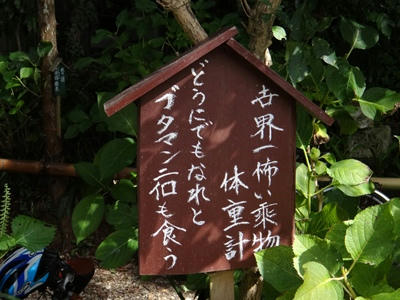 世界一怖い乗物
体重計
どうにでもなれと
ブタマン二コも食う